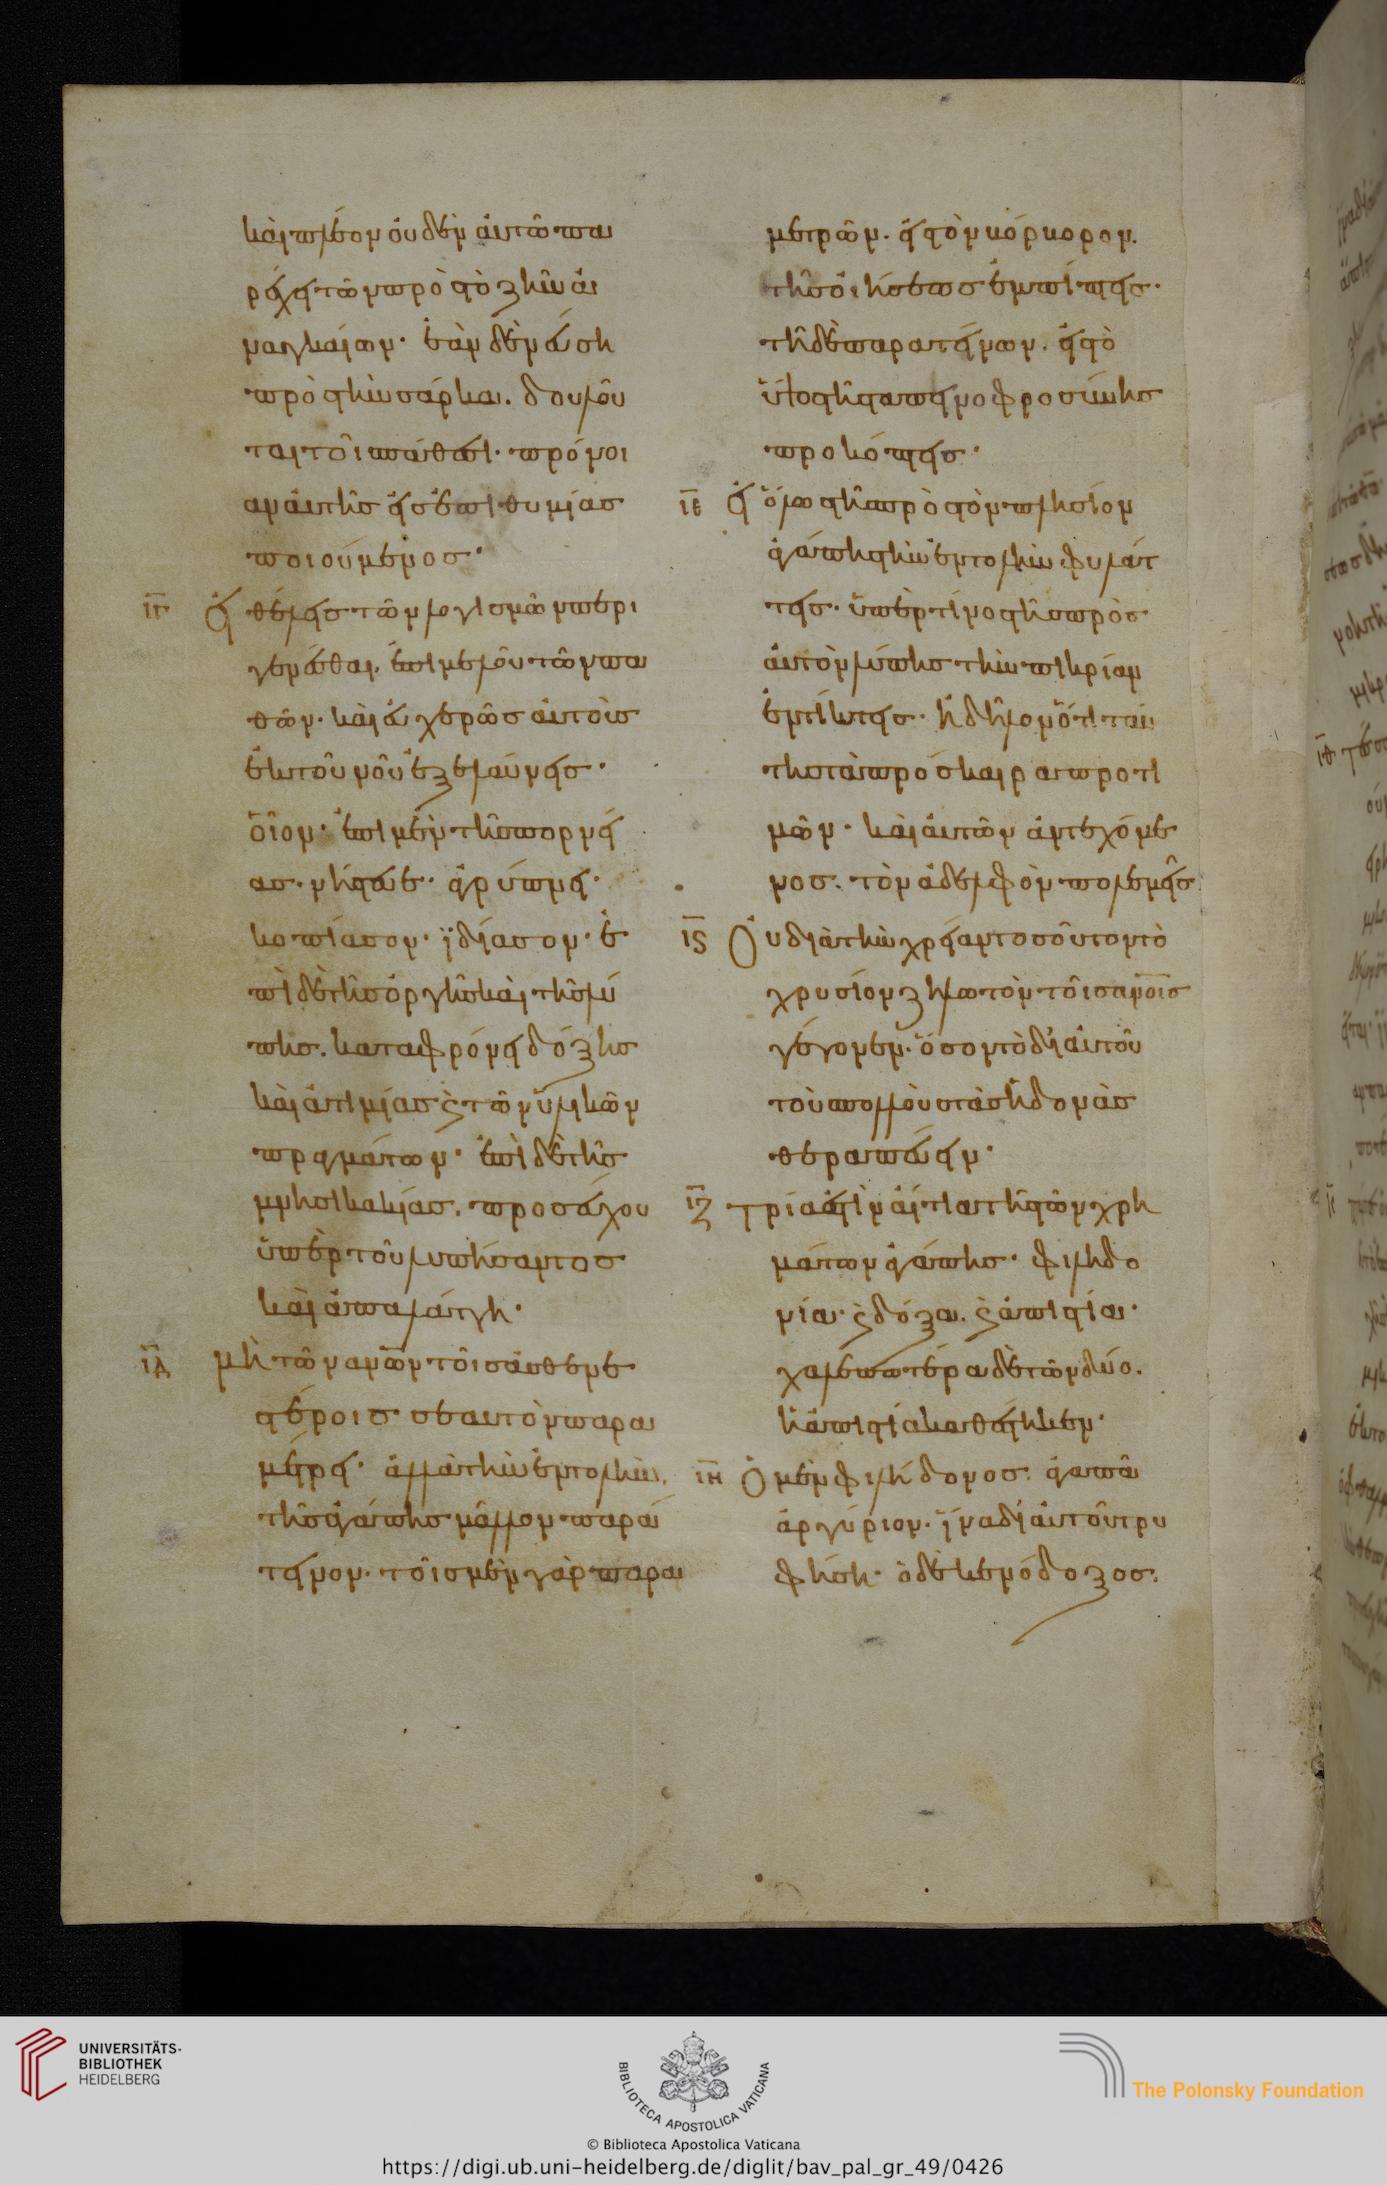 καὶ πλέον οὐδὲν αὐτῶ πα
ρέχει τῶν πρὸ τὸ ζῆν ἀ
ναγκαίων· ἐὰν δὲ νεύση
πρὸς τὴν σάρκα. δουλοῦ
ται τοῖ πάθεσι· πρόνοι
αν αὐτῆς εἰς ἐπιθυμίας
ποιούμενος·
ιγ εἰ θέλεις τῶν λογισμῶν περι
γενέσθαι. ἐπιμελοῦ τῶν πα
θῶν· καὶ εὐχερῶς αὐτοὺς
ἐκ τοῦ νοῦ ἐξελαύνεις·
οἷον· ἐπὶ μὲν τῆς πορνεί
ας· νήστευε· ἀγρύπνει·
κοπίασον· ἰδίασον· ἐ
πὶ δὲ τῆς ὀργῆς καὶ τῆς λύ
πης. καταφρόνει δόξης
καὶ ἀτιμίας ϗ τῶν ὑλικῶν
πραγμάτων· ἐπὶ δὲ τῆς
μνησικακίας. προσεύχου
ὑπὲρ τοῦ λυπήσαντος
καὶ ἀπαλάττη·
ιδ μὴ τῶν ανων τοῖς ἀσθενε
στέροις σεαυτὸν παρα
μέτρει· ἀλλὰ τὴν ἐντολὴν.
τῆς ἀγάπης μᾶλλον παρά
τεινον· τοῖς μὲν γὰρ παρα
μετρῶν. εἰς τὸν κόρκορον.
τῆς οἰήσεως ἐμπίπτεις·
τῆ δὲ παρατείνων. εἰς τὸ
ὕψος τῆς ταπεινοφροσύνης
προκόπτεις·
ιε εἰ ὅλως τῆς πρὸς τὸν πλησίον
ἀγάπης τὴν ἐντολὴν φυλάτ
τεις· ὑπὲρ τίνος τῆς πρὸς
αὐτὸν λύπης τὴν πικρίαν
ἐντίκτεις· ἢ δῆλον ὅτι ταύ
της τὰ πρόσκαιρα προτι
μῶν· καὶ αὐτῶν ἀντεχόμε
νος. τὸν ἀδελφὸν πολεμεῖς.
ις Οὐ διὰ τὴν χρείαν τοσοῦτον τὸ
χρυσίον ζηλωτὸν τοῖς ανοις
γέγονεν· ὅσον τὸ δι᾽ αὐτοῦ
τοὺς πολλοὺς τὰς ἡδονὰς
θεραπεύειν·
ιζ τρία εἰσὶν αἴτια τῆς τῶν χρη
μάτων ἀγάπης· φιληδο
νία· ϗ δόξα. ϗ ἀπιστία·
χαλεπωτέρα δὲ τῶν δύο.
ἡ ἀπιστία καθέστηκεν·
ιη Ὁ μὲν φιλήδονος. ἀγαπᾶ
ἀργύριον· ἵνα δι᾽ αὐτοῦ τρυ
φήση· ὁ δὲ κενόδοξος.
UNIVERSITÄTS-
BIBLIOTHEK
HEIDELBERG
BIBLIOTECA APOSTOLICA VATICANA
The Polonsky Foundation
© Biblioteca Apostolica Vaticana
https://digi.ub.uni-heidelberg.de/diglit/bav_pal_gr_49/0426